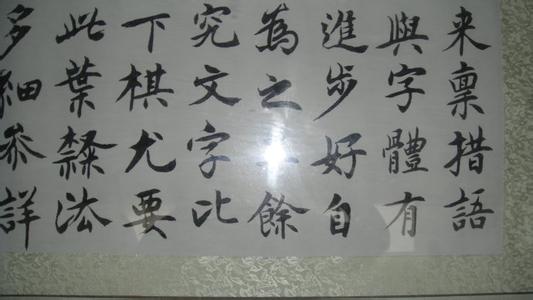 来禀措語
與字體有
進步好自
為之餘
究文字比
下棋尤要
此葉隸法
多細叅詳